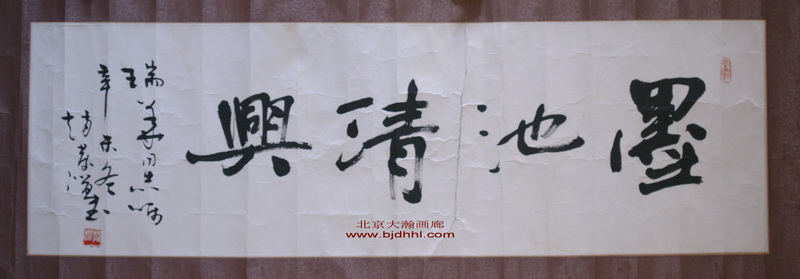 墨池清興
瑞華同志嘱
辛未冬
书
北京大瀚画廊
www.bjdhhl.com